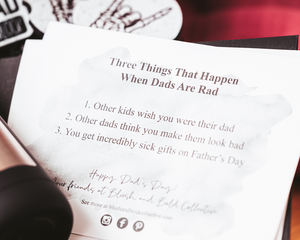 Three Things That Happen
When Dads Are Rad
1. Other kids wish you were their dad
2. Other dads think you make them look bad
3. You get incredibly sick gifts on Father's Day
Happy Dad's Day!
Your friends at Bleach and Bold Collective
See more at